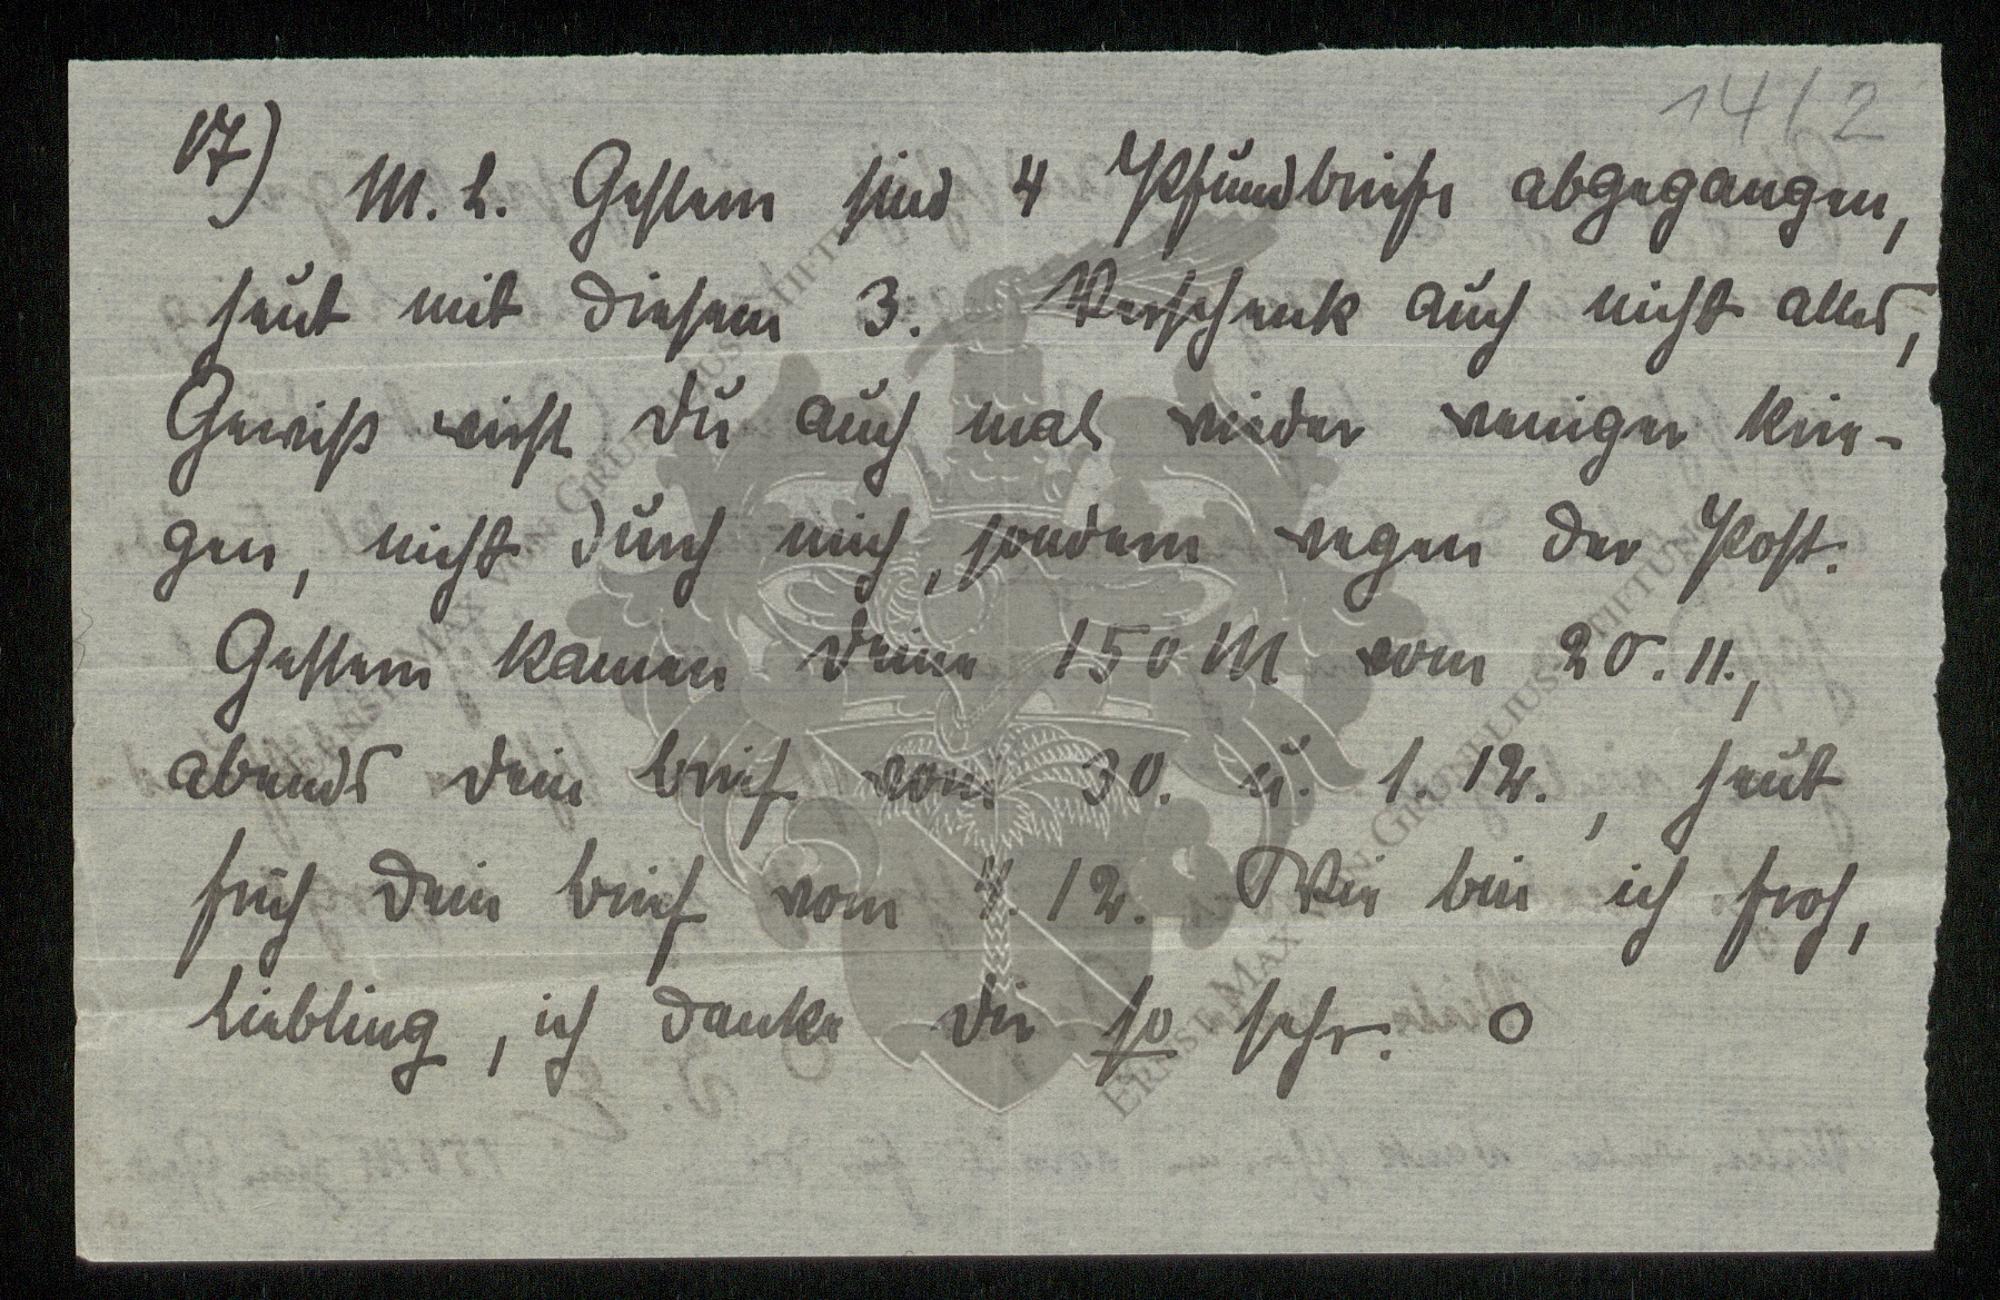 14/2
17)
M. L. Gestern sind 4 Pfundbriefe abgegangen,
heut mit diesem 3. Verschenk auch nicht alles,
Gewiß wirst Du auch mal wieder weniger krie-
gen, nicht durch mich, sondern wegen der Post.
Gestern kamen deine 150 M vom 20. 11.,
abends dein brief vom 30. u. 1. 12., heut
früh dein brief vom 4. 12. Wie bin ich froh,
Liebling, ich danke dir so sehr. O
ERNST MAX VON GRUNELIUS-STIFTUNG
ERNST MAX VON GRUNELIUS-STIFTUNG